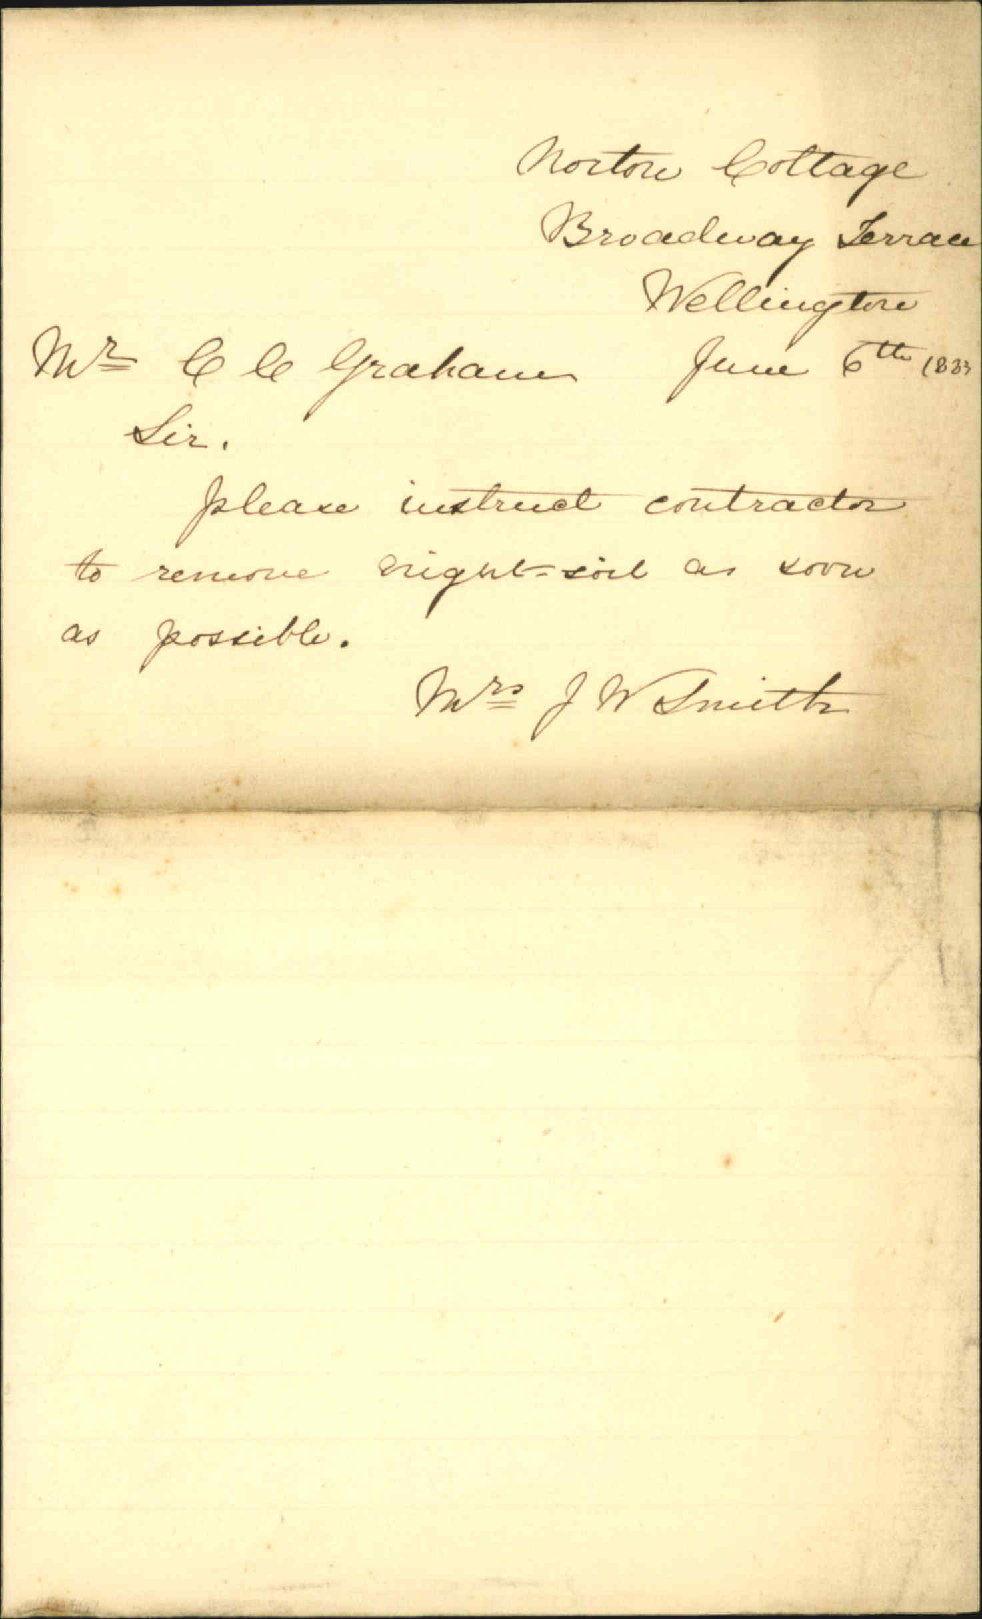 Norton Cottage
Broadway Terrace
Wellington
Mr C C Graham June 6th 1883
Sir.
please instruct contractor
to remove night-soil as soon
as possible.
Mrs J W Smith